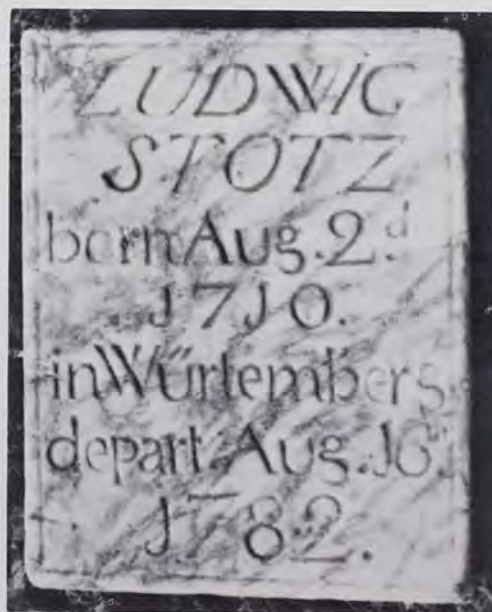 LUDWIG
STOTZ
born Aug. 2.d
1710.
in Würtemberg
depart. Aug. 16th
1782.